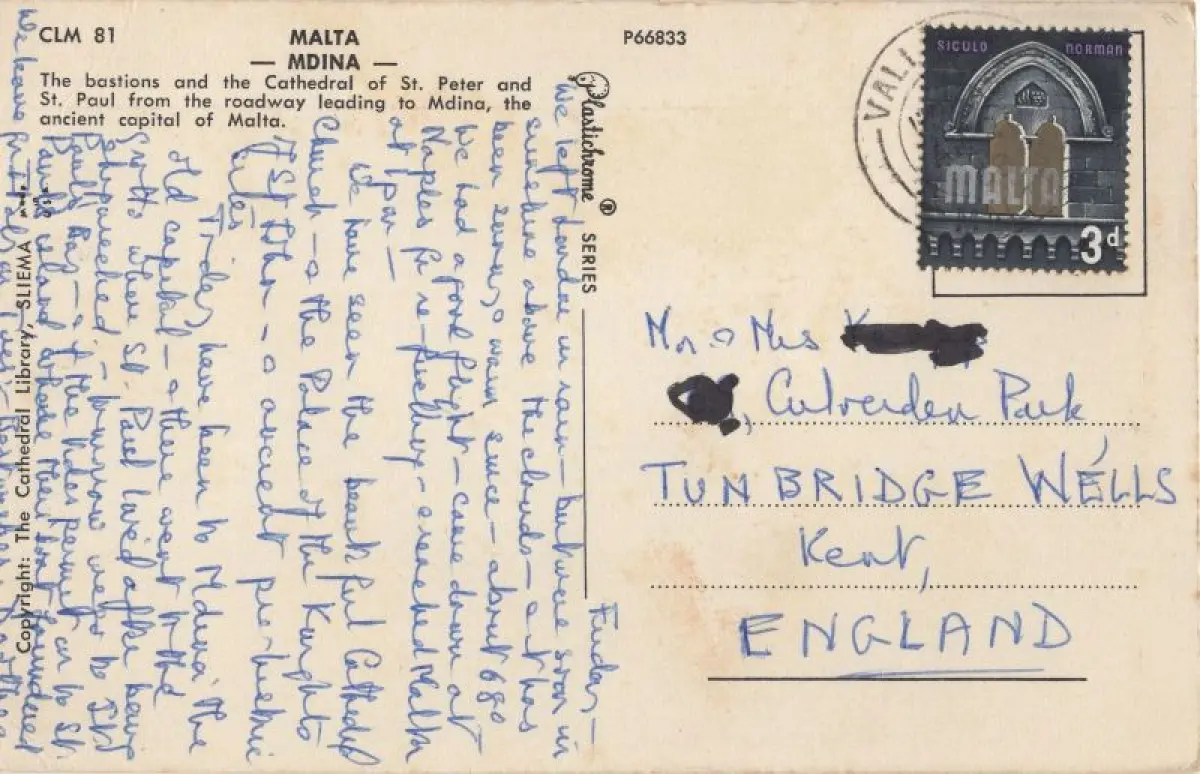 CLM 81
MALTA
— MDINA —
The bastions and the Cathedral of St. Peter and
St. Paul from the roadway leading to Mdina, the
ancient capital of Malta.
P66833
Plastichrome ® SERIES
Copyright: The Cathedral Library, SLIEMA
VALL
SICULO NORMAN
MALTA
3d
Mr & Mrs K
, Culverden Park
TUNBRIDGE WELLS
Kent,
ENGLAND
We left London in rain — but were soon in
sunshine above the clouds — & it has
been sunny & warm since — about 68°
We had a good flight — came down at
Naples for re-fuelling — reached Malta
at pm —
We have seen the beautiful Cathedral
Church — & the Palace of the Knights
of St John — & ancient pre-historic
Today have been to Mdina the
old capital — & there went to the
Grotto where St. Paul lived after being
Shipwrecked. — tomorrow we go to St
Paul's Bay — & if the tides permit on to St.
Paul's island where their boat foundered
We leave